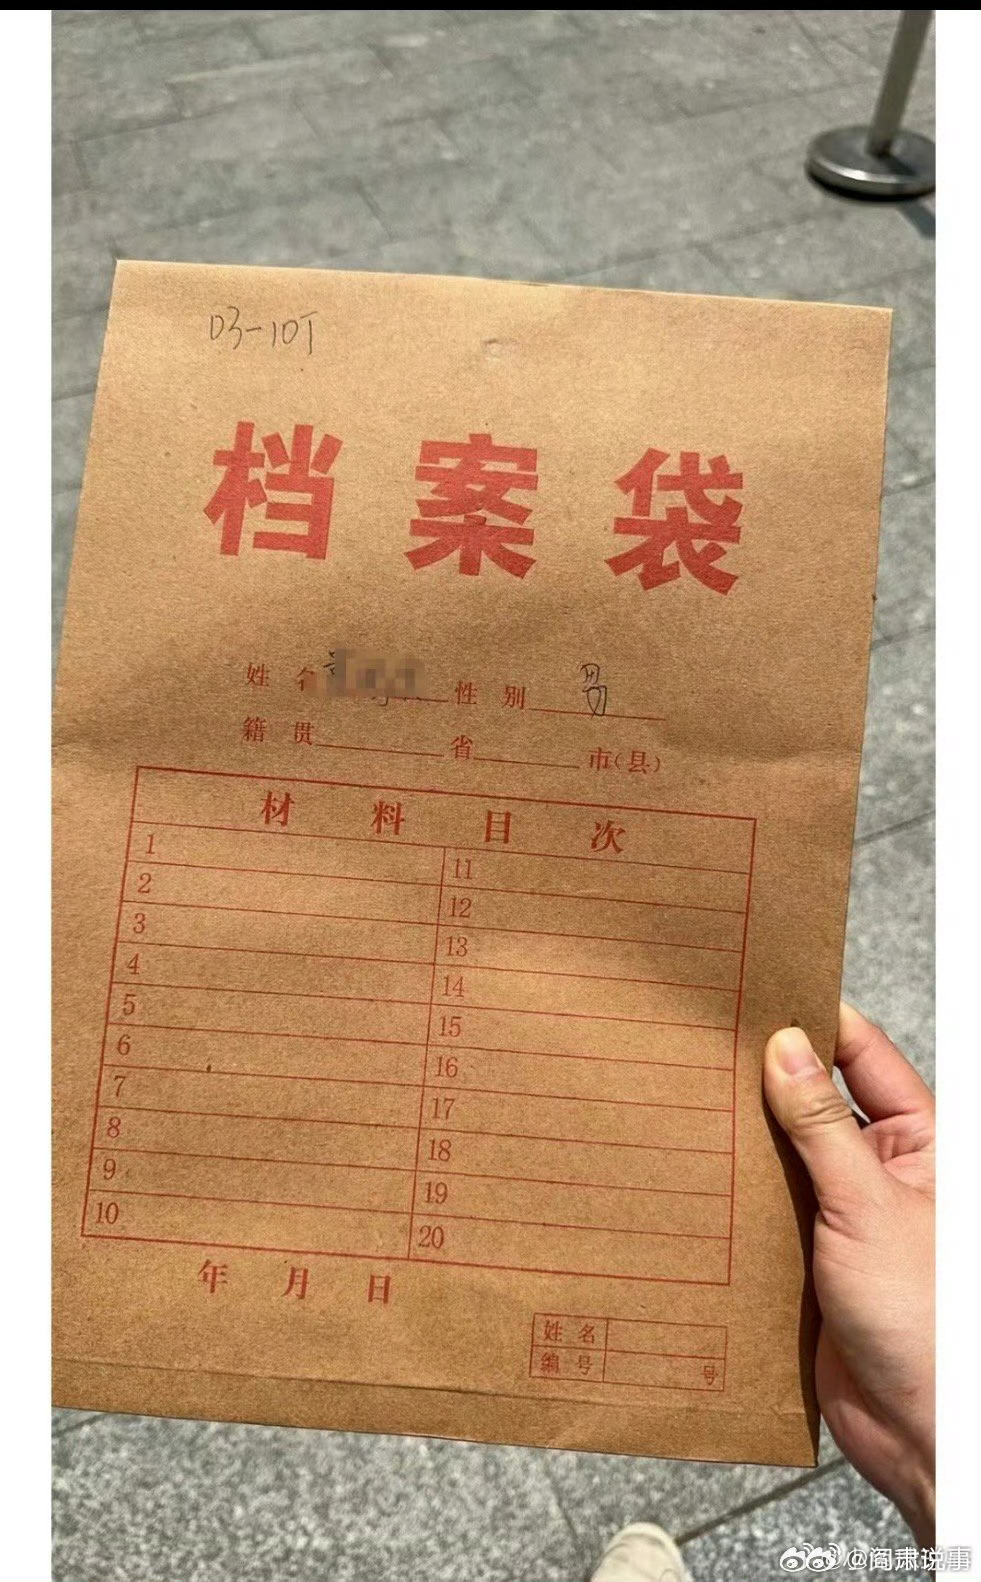 03-10T
档案袋
姓名 性别 男
籍贯 省 市(县)
材料目次
1 11
2 12
3 13
4 14
5 15
6 16
7 17
8 18
9 19
10 20
年 月 日
姓名
编号 号
@阎肃说事